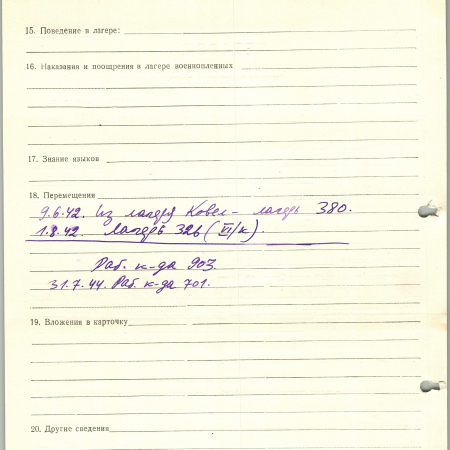 15. Поведение в лагере:
16. Наказания и поощрения в лагере военнопленных
17. Знание языков
18. Перемещения
9.6.42. Из лагеря Ковел – лагерь 380.
1.8.42. Лагерь 326 (VI/к).
Раб. к-да 903.
31.7.44. Раб. к-да 701.
19. Вложения в карточку
20. Другие сведения